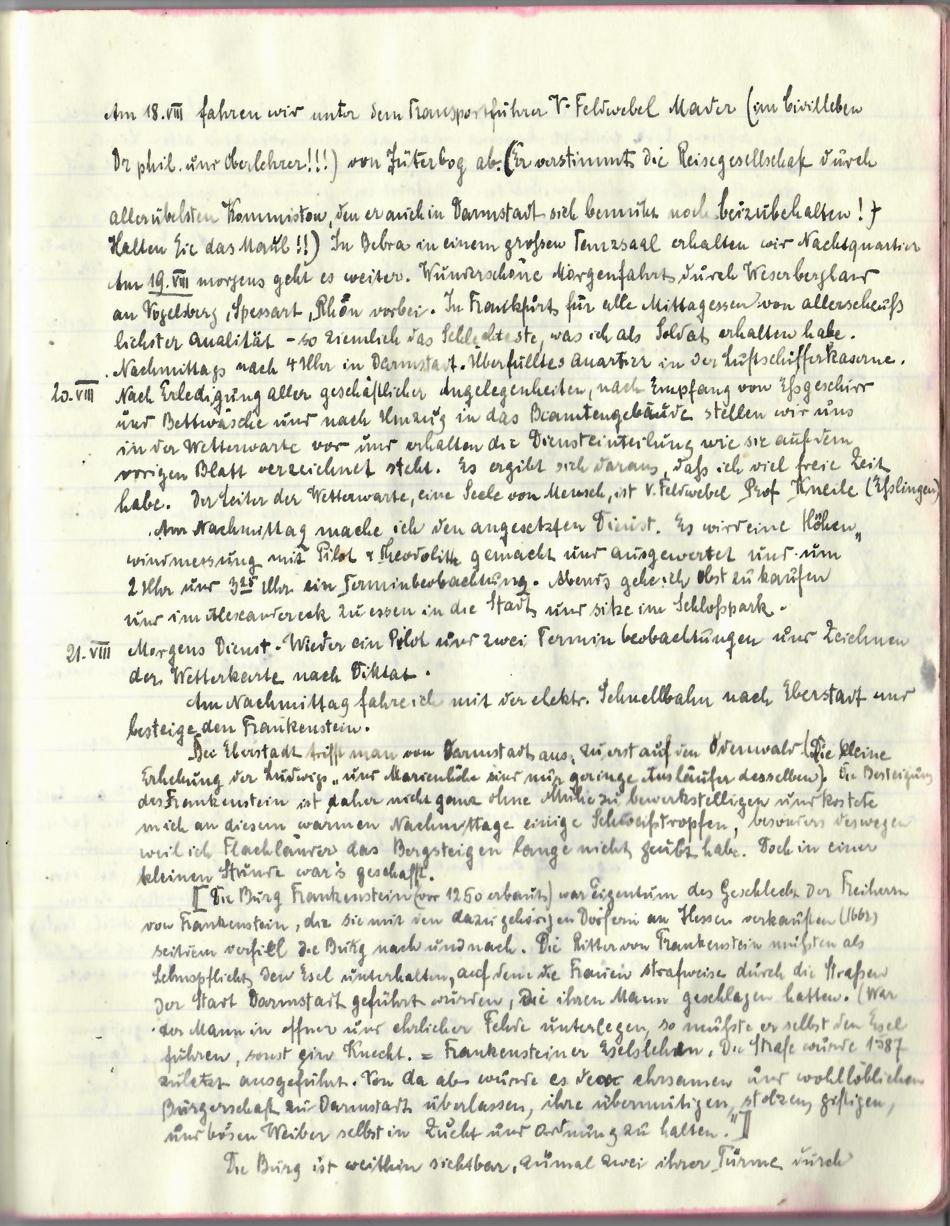 Am 18.VIII fahren wir unter dem Transportführer V-Feldwebel Mader (im Civilleben
Dr phil. und Oberlehrer!!!) von Jüterbog ab. (Er verstimmt die Reisegesellschaft durch
allerübelsten Kommiston, den er auch in Darmstadt sich bemüht noch beizubehalten!
Halten Sie das Maul!!) In Bebra in einem großen Tanzsaal erhalten wir Nachtquartier
Am 19.VIII morgens geht es weiter. Wunderschöne Morgenfahrt durch Weserbergland
an Vogelsberg, Spessart, Rhön vorbei. In Frankfurt für alle Mittagessen von allerscheuß
lichster Qualität – so ziemlich das Schlechteste, was ich als Soldat erhalten habe.
Nachmittags nach 4 Uhr in Darmstadt. Überfülltes Quartier in der Luftschifferkaserne.
20.VIII Nach Erledigung aller geschäftlicher Angelegenheiten, nach Empfang von Eßgeschirr
und Bettwäsche und nach Umzug in das Beamtengebäude stellen wir uns
in der Wetterwarte vor und erhalten die Diensteinteilung wie sie auf dem
vorigen Blatt verzeichnet steht. Es ergibt sich daraus, daß ich viel freie Zeit
habe. Der Leiter der Wetterwarte, eine Seele von Mensch, ist V.Feldwebel Prof Kneile (Eßlingen)
Am Nachmittag mache ich den angesetzten Dienst. Es wird eine Höhen„
windmessung mit Pilot & Theodolith gemacht und ausgewertet und um
2 Uhr und 3²⁵ Uhr ein Terminbeobachtung. Abends gehe ich Obst zu kaufen
und im Alexandereck zu essen in die Stadt und sitze im Schloßpark.
21.VIII Morgens Dienst. Wieder ein Pilot und zwei Terminbeobachtungen und Zeichnen
der Wetterkarte nach Diktat.
Am Nachmittag fahre ich mit der elektr. Schnellbahn nach Eberstadt und
besteige den Frankenstein.
Bei Eberstadt trifft man von Darmstadt aus, zuerst auf den Odenwald (Die kleine
Erhebung der Ludwigs„ und Marienhöhe sind nur geringe Ausläufer desselben). Die Besteigung
des Frankenstein ist daher nicht ganz ohne Mühe zu bewerkstelligen und kostete
mich an diesem warmen Nachmittage einige Schweißtropfen, besonders deswegen
weil ich Flachländer das Bergsteigen lange nicht geübt habe. Doch in einer
kleinen Stunde war's geschafft.
[Die Burg Frankenstein (vor 1250 erbaut) war Eigentum des Geschlechts der Freiherrn
von Frankenstein, die sie mit den dazugehörigen Dörfern an Hessen verkauften (1662)
seitdem verfiel die Burg nach und nach. Die Ritter von Frankenstein mußten als
Lehnspflicht den Esel unterhalten, auf dem die Frauen strafweise durch die Straßen
der Stadt Darmstadt geführt wurden, die ihren Mann geschlagen hatten. (War
der Mann in offner und ehrlicher Fehde unterlegen, so mußte er selbst den Esel
führen, sonst ein Knecht. = Frankensteiner Eselslehen. Die Strafe wurde 1587
zuletzt ausgeführt. Von da ab wurde es der ehrsamen und wohllöblichen
Bürgerschaft zu Darmstadt überlassen, ihre übermütigen, stolzen, giftigen,
und bösen Weiber selbst in Zucht und Ordnung zu halten."]
Die Burg ist weithin sichtbar, zumal zwei ihrer Türme durch